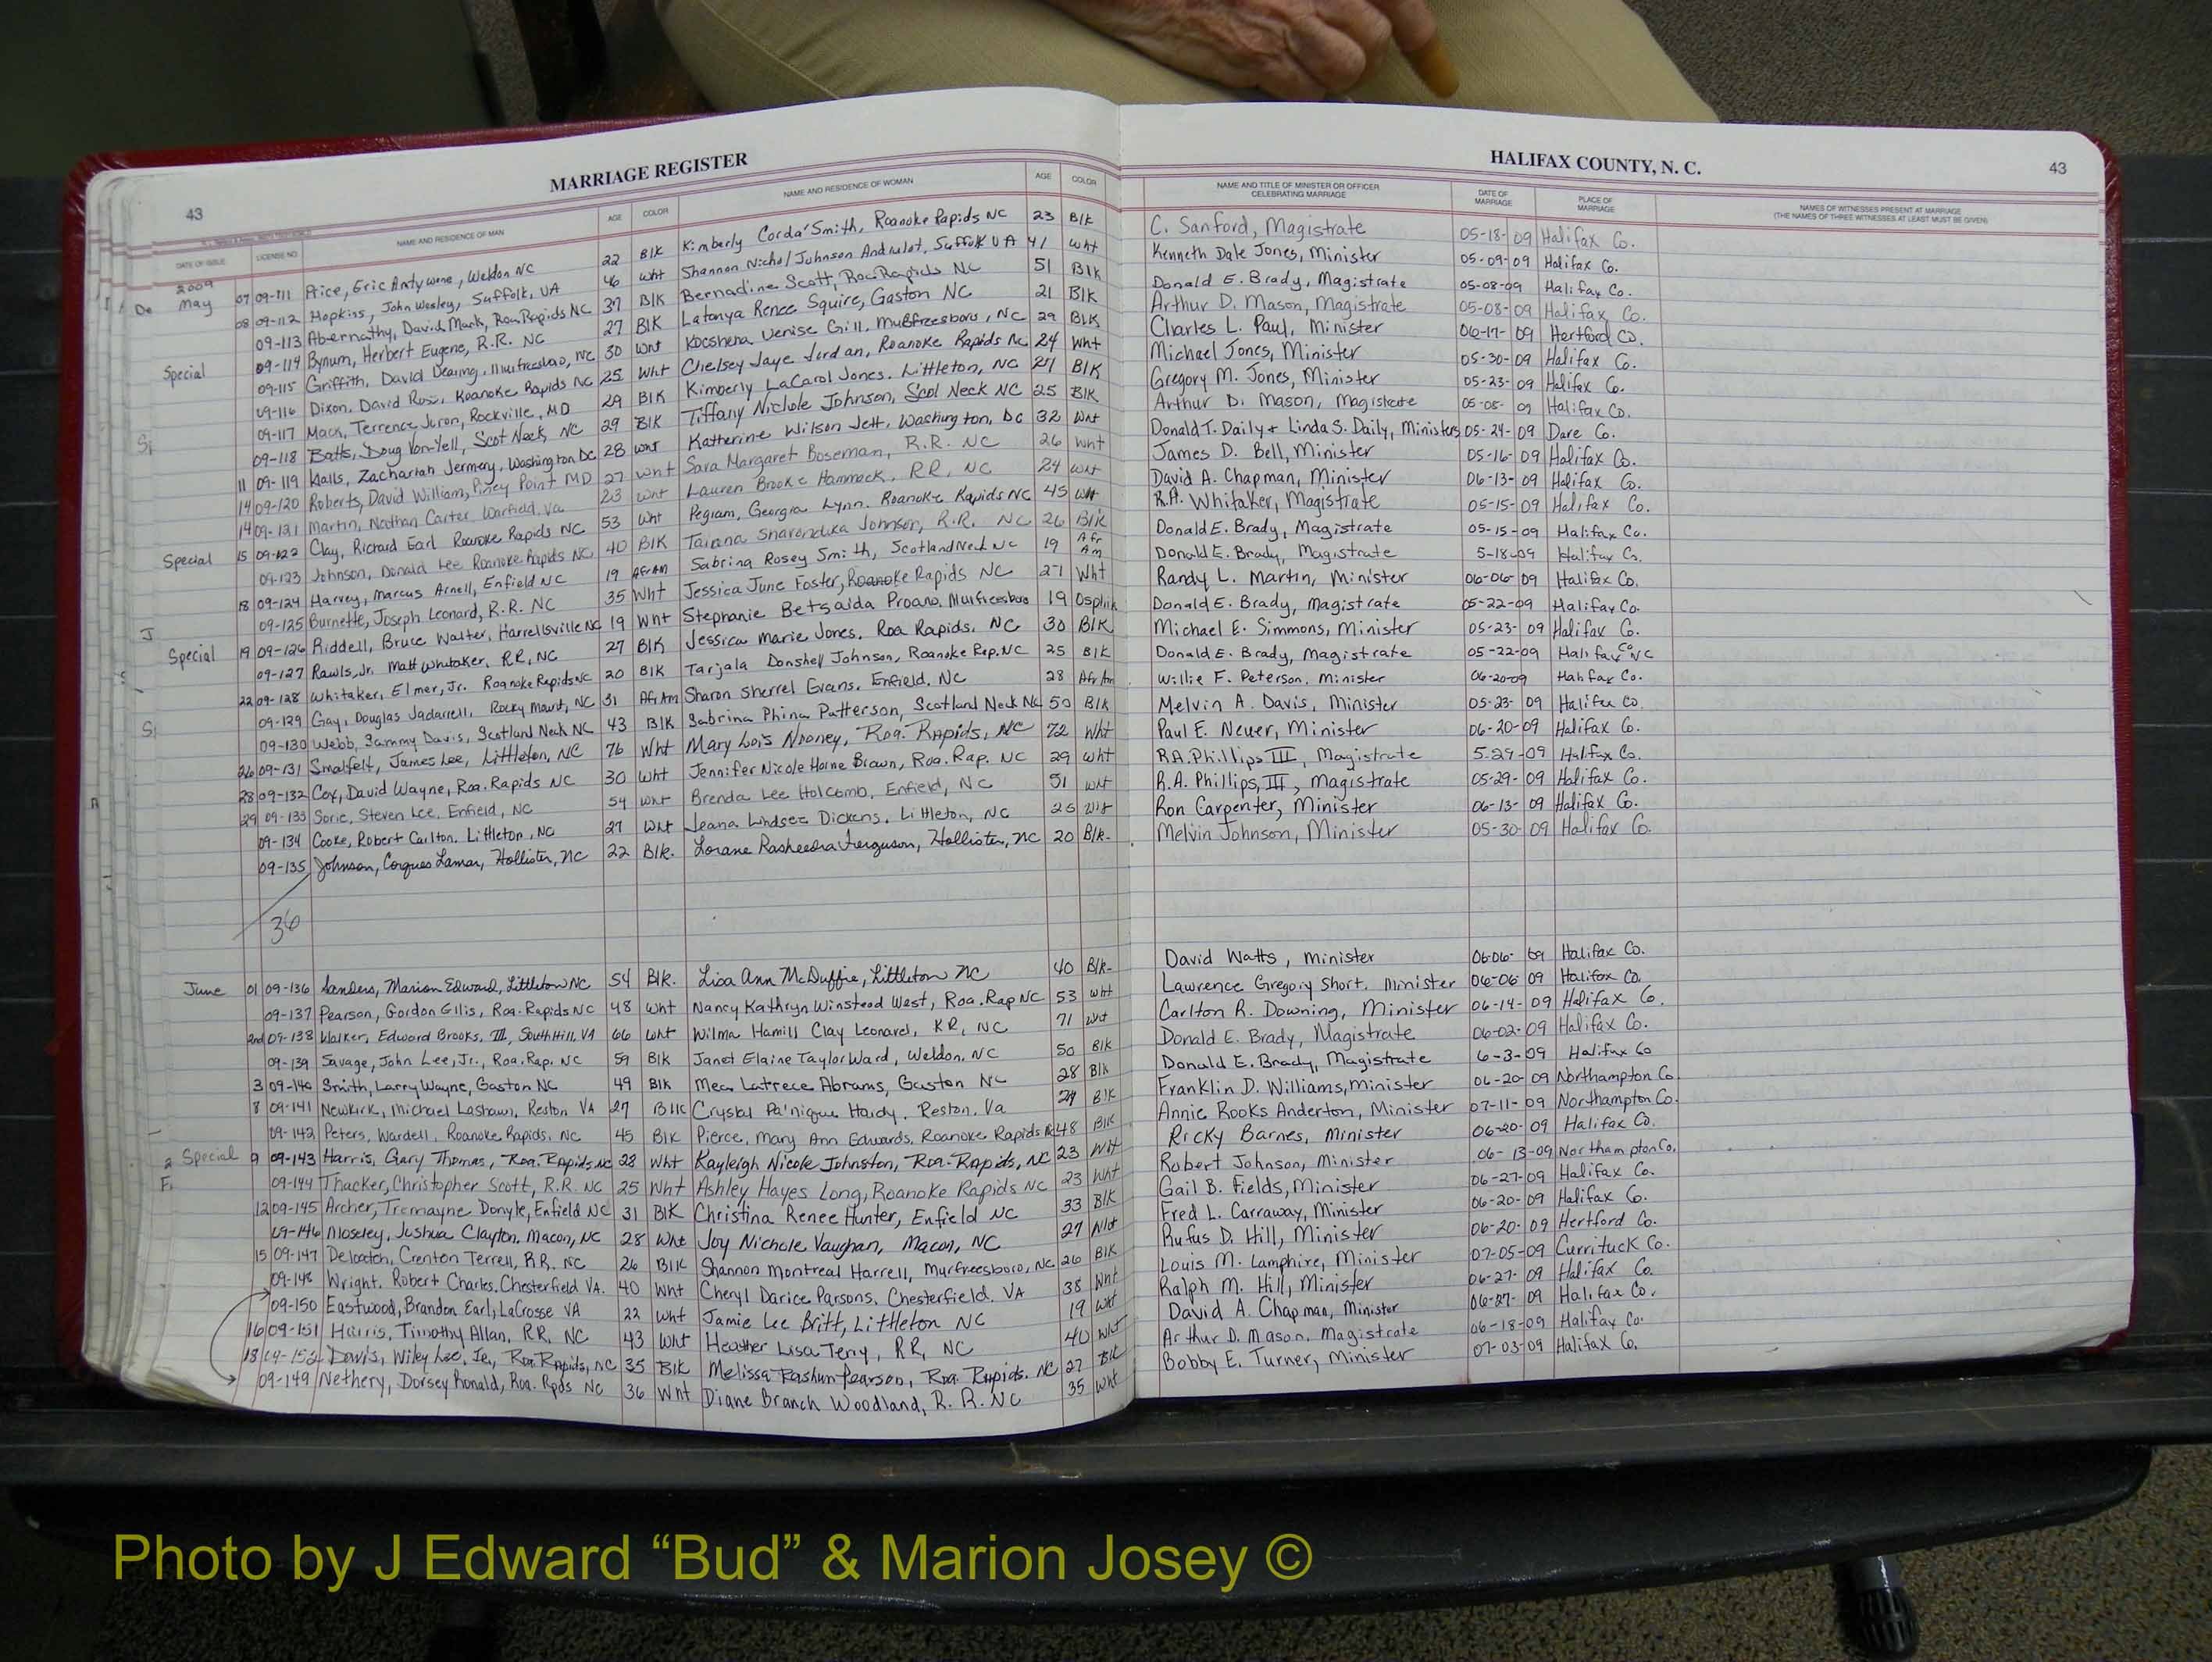 MARRIAGE REGISTER
HALIFAX COUNTY, N. C.
43
43
DATE OF ISSUE LICENSE NO. NAME AND RESIDENCE OF MAN AGE COLOR NAME AND RESIDENCE OF WOMAN AGE COLOR NAME AND TITLE OF MINISTER OR OFFICER CELEBRATING MARRIAGE DATE OF MARRIAGE PLACE OF MARRIAGE NAMES OF WITNESSES PRESENT AT MARRIAGE (THE NAMES OF THREE WITNESSES AT LEAST MUST BE GIVEN)
2009
May 07 09-111 Price, Eric Antywone, Weldon NC 22 Blk Kimberly Corda Smith, Roanoke Rapids NC 23 Blk C. Sanford, Magistrate 05-18-09 Halifax Co.
08 09-112 Hopkins, John Wesley, Suffolk, VA 46 Wht Shannon Nichol Johnson Andrulot, Suffolk VA 41 Wht Kenneth Dale Jones, Minister 05-09-09 Halifax Co.
09-113 Abernathy, David Mark, Roa Rapids NC 37 Blk Bernadine Scott, Roa. Rapids NC 51 Blk Donald E. Brady, Magistrate 05-08-09 Halifax Co.
09-114 Bynum, Herbert Eugene, R.R. NC 27 Blk Latonya Renee Squire, Gaston NC 21 Blk Arthur D. Mason, Magistrate 05-08-09 Halifax Co.
Special 09-115 Griffith, David Dearing, Murfreesboro, NC 30 Wht Venise Gill, Murfreesboro, NC 29 Blk Charles L. Paul, Minister 06-17-09 Hertford Co.
09-116 Dixon, David Ross, Roanoke Rapids NC 25 Wht Chelsey Jaye Jordan, Roanoke Rapids NC 24 Wht Michael Jones, Minister 05-30-09 Halifax Co.
09-117 Mack, Terrence Juron, Rockville, MD 29 Blk Kimberly LaCarol Jones, Littleton, NC 27 Blk Gregory M. Jones, Minister 05-23-09 Halifax Co.
09-118 Batts, Doug Von-Yell, Scot Neck, NC 29 Blk Tiffany Nichole Johnson, Scot Neck NC 25 Blk Arthur D. Mason, Magistrate 05-08-09 Halifax Co.
11 09-119 Walls, Zachariah Jermery, Washington DC 28 Wht Katherine Wilson Jett, Washington, DC 32 Wht Donald T. Daily + Linda S. Daily, Ministers 05-24-09 Dare Co.
14 09-120 Roberts, David William, Piney Point MD 27 Wht Sara Margaret Boseman, R.R. NC 26 Wht James D. Bell, Minister 05-16-09 Halifax Co.
14 09-121 Martin, Nathan Carter Warfield, Va 23 Wht Lauren Brooke Hammack, RR, NC 24 Wht David A. Chapman, Minister 06-13-09 Halifax Co.
Special 15 09-122 Clay, Richard Earl Roanoke Rapids NC 53 Wht Pegram, Georgia Lynn, Roanoke Rapids NC 45 Wht R.A. Whitaker, Magistrate 05-15-09 Halifax Co.
09-123 Johnson, Donald Lee Roanoke Rapids NC 40 Blk Johnson, R.R. NC 26 Blk Donald E. Brady, Magistrate 05-15-09 Halifax Co.
18 09-124 Harvey, Marcus Arnell, Enfield NC 19 Afr Am Sabrina Rosey Smith, Scotland Neck NC 19 Afr Am Donald E. Brady, Magistrate 5-18-09 Halifax Co.
09-125 Burnette, Joseph Leonard, R.R. NC 35 Wht Jessica June Foster, Roanoke Rapids NC 27 Wht Randy L. Martin, Minister 06-06-09 Halifax Co.
Special 19 09-126 Riddell, Bruce Walter, Harrellsville NC 19 Wht Stephanie Betsaida Proano, Murfreesboro 19 Donald E. Brady, Magistrate 05-22-09 Halifax Co.
09-127 Rawls, Jr. Matt Whitaker, RR, NC 27 Blk Jessica Marie Jones, Roa Rapids, NC 30 Blk Michael E. Simmons, Minister 05-23-09 Halifax Co.
22 09-128 Whitaker, Elmer, Jr. Roanoke Rapids NC 20 Blk Tarjala Donshell Johnson, Roanoke Rap. NC 25 Blk Donald E. Brady, Magistrate 05-22-09 Halifax Co NC
09-129 Gay, Douglas Jadarrell, Rocky Mount, NC 31 Afr Am Sharon Sherrel Evans, Enfield, NC 28 Afr Am Willie F. Peterson, Minister 06-20-09 Halifax Co.
09-130 Webb, Sammy Davis, Scotland Neck NC 43 Blk Sabrina Phina Patterson, Scotland Neck NC 50 Blk Melvin A. Davis, Minister 05-23-09 Halifax Co
26 09-131 Smalfelt, James Lee, Littleton, NC 76 Wht Mary Lois Nooney, Roa. Rapids, NC 72 Wht Paul E. Neuer, Minister 06-20-09 Halifax Co.
28 09-132 Cox, David Wayne, Roa. Rapids NC 30 Wht Jennifer Nicole Horne Brown, Roa. Rap. NC 29 Wht R.A. Phillips III, Magistrate 5-29-09 Halifax Co.
29 09-133 Sorie, Steven Lee, Enfield, NC 54 Wht Brenda Lee Holcomb, Enfield, NC 51 Wht R.A. Phillips, III, Magistrate 05-29-09 Halifax Co.
09-134 Cooke, Robert Carlton, Littleton, NC 27 Wht Jeana Lindsee Dickens, Littleton, NC 26 Wht Ron Carpenter, Minister 06-13-09 Halifax Co.
09-135 Johnson, Corques Lamar, Hollister, NC 22 Blk. Lorane Rasheedra Ferguson, Hollister, NC 20 Blk- Melvin Johnson, Minister 05-30-09 Halifax Co.
36
June 01 09-136 Sanders, Marion Edward, Littleton NC 54 Blk. Lisa Ann McDuffie, Littleton NC 40 Blk- David Watts, Minister 06-06-09 Halifax Co.
09-137 Pearson, Gordon Gilis, Roa. Rapids NC 48 Wht Nancy Kathryn Winstead West, Roa. Rap NC 53 Wht Lawrence Gregory Short, Minister 06-06-09 Halifax Co.
2nd 09-138 Walker, Edward Brooks, III, South Hill, VA 66 Wht Wilma Hamill Clay Leonard, RR, NC 71 Wht Carlton R. Downing, Minister 06-14-09 Halifax Co.
09-139 Savage, John Lee, Jr., Roa. Rap. NC 59 Blk Janet Elaine Taylor Ward, Weldon, NC 50 Blk Donald E. Brady, Magistrate 06-02-09 Halifax Co.
3 09-140 Smith, Larry Wayne, Gaston NC 49 Blk Mea Latrece Abrams, Gaston NC 28 Blk Donald E. Brady, Magistrate 6-3-09 Halifax Co
8 09-141 Newkirk, Michael Lashawn, Reston VA 27 Blk Crystal Pa'nique Hardy, Reston, Va 29 Blk Franklin D. Williams, Minister 06-20-09 Northampton Co.
09-142 Peters, Wardell, Roanoke Rapids, NC 45 Blk Pierce, Mary Ann Edwards, Roanoke Rapids NC 48 Blk Annie Rooks Anderton, Minister 07-11-09 Northampton Co.
Special 9 09-143 Harris, Gary Thomas, Roa. Rapids NC 28 Wht Kayleigh Nicole Johnston, Roa. Rapids, NC 23 Wht Ricky Barnes, Minister 06-20-09 Halifax Co.
09-144 Thacker, Christopher Scott, R.R. NC 25 Wht Ashley Hayes Long, Roanoke Rapids NC 23 Wht Robert Johnson, Minister 06-13-09 Northampton Co.
12 09-145 Archer, Tremayne Donyle, Enfield NC 31 Blk Christina Renee Hunter, Enfield NC 33 Blk Gail B. Fields, Minister 06-27-09 Halifax Co.
09-146 Moseley, Joshua Clayton, Macon, NC 28 Wht Joy Nichole Vaughan, Macon, NC 27 Wht Fred L. Carraway, Minister 06-20-09 Halifax Co.
15 09-147 Deloatch, Crenton Terrell, RR, NC 26 Blk Shannon Montreal Harrell, Murfreesboro, NC 26 Blk Rufus D. Hill, Minister 06-20-09 Hertford Co.
09-148 Wright, Robert Charles, Chesterfield VA. 40 Wht Cheryl Darice Parsons, Chesterfield, VA 38 Wht Louis M. Lamphire, Minister 07-05-09 Currituck Co.
09-150 Eastwood, Brandon Earl, LaCrosse VA 22 Wht Jamie Lee Britt, Littleton NC 19 Wht Ralph M. Hill, Minister 06-27-09 Halifax Co.
16 09-151 Harris, Timothy Allan, RR, NC 43 Wht Heather Lisa Terry, RR, NC 40 Wht David A. Chapman, Minister 06-27-09 Halifax Co.
18 09-152 Davis, Wiley Lee, Jr., Roa Rapids, NC 35 Blk Melissa Rashun Pearson, Roa. Rapids, NC 27 Blk Arthur D. Mason, Magistrate 06-18-09 Halifax Co.
09-149 Nethery, Dorsey Ronald, Roa. Rpds NC 36 Wht Diane Branch Woodland, R.R. NC 35 Wht Bobby E. Turner, Minister 07-03-09 Halifax Co.
Photo by J Edward “Bud” & Marion Josey ©